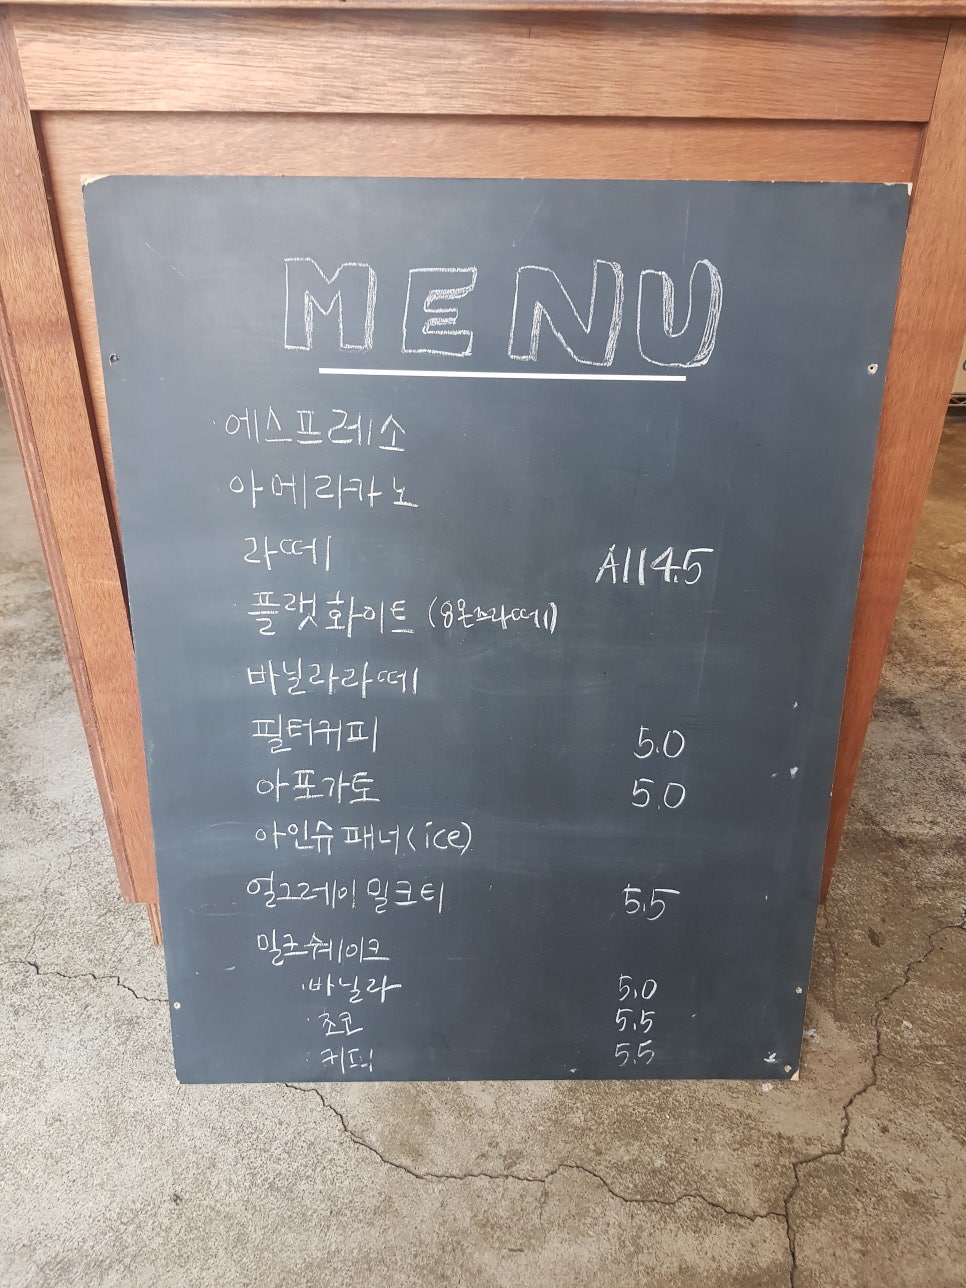 MENU
에스프레소
아메리카노
라떼 All 4.5
플랫화이트 (8온즈라떼)
바닐라라떼
필터커피 5.0
아포가토 5.0
아인슈패너(ice)
얼그레이 밀크티 5.5
밀크쉐이크
·바닐라 5.0
·초코 5.5
·커피 5.5